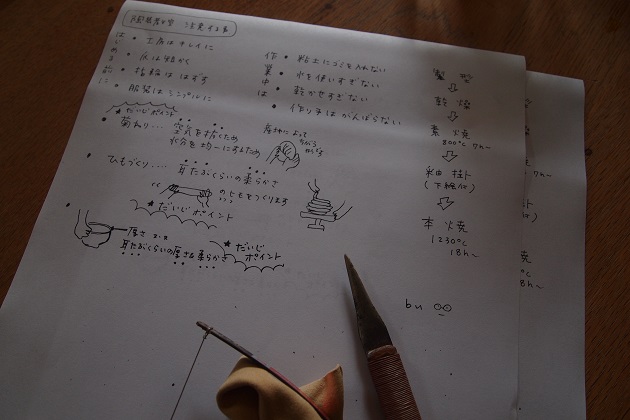 陶芸教室 注意する事
はじめる前に
• 工房はキレイに
• 爪は短かく
• 指輪ははずす
• 服装はシンプルに
作業中は
• 粘土にゴミを入れない
• 水を使いすぎない
• 乾かせすぎない
• 作り手はがんばらない
★だいじポイント
• 菊ねり・・・空気を抜くため
水分を均一にするため
産地によって
ちがう
• ひもづくり・・・・耳たぶくらいの柔らかさ
のひもをつくります
★だいじポイント
厚さ
耳たぶくらいの厚さ&柔らかさ
★だいじポイント
製型
⇩
乾燥
⇩
素焼
800℃ 7h〜
⇩
釉掛ト
(下絵付)
⇩
本焼
1230℃
18h〜
bu
7h〜
焼
℃
18h〜